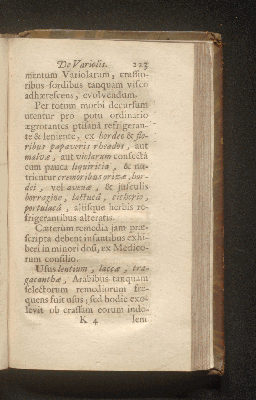 De Variolis. 223
mentum Variolarum, crassio-
ribus sordibus tanquam visco
adhærescens, evolvendum.
Per totum morbi decursum
utentur pro potu ordinario
ægrotantes ptisanâ refrigeran-
te & leniente, ex hordeo & flo-
ribus papaveris rheados, aut
malvæ, aut violarum confectâ
cum pauca liquiritia, & nu-
trientur cremoribus orizæ, hor-
dei, vel avenæ, & jusculis
borragine, lactucâ, cichorio,
portulacâ, aliisque herbis re-
frigerantibus alteratis.
Cæterùm remedia jam præ-
scripta debent infantibus exhi-
beri in minori dosi, ex Medico-
rum consilio.
Usus lentium, laccæ, tra-
gacanthæ, Arabibus tanquam
selectorum remediorum fre-
quens fuit usus; sed hodie exo-
levit ob crassam eorum indo-
K 4 lem